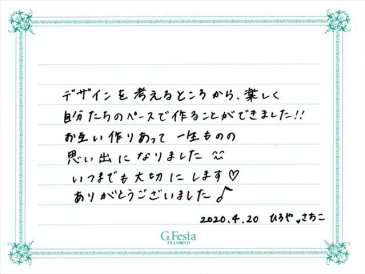 デザインを考えるところから、楽しく
自分たちのペースで作ることができました!!
お互い作りあって一生ものの
思い出になりました
いつまでも大切にします♡
ありがとうございました♪
2020.4.20 ひろや・さちこ
G.Festa
DIAMOND